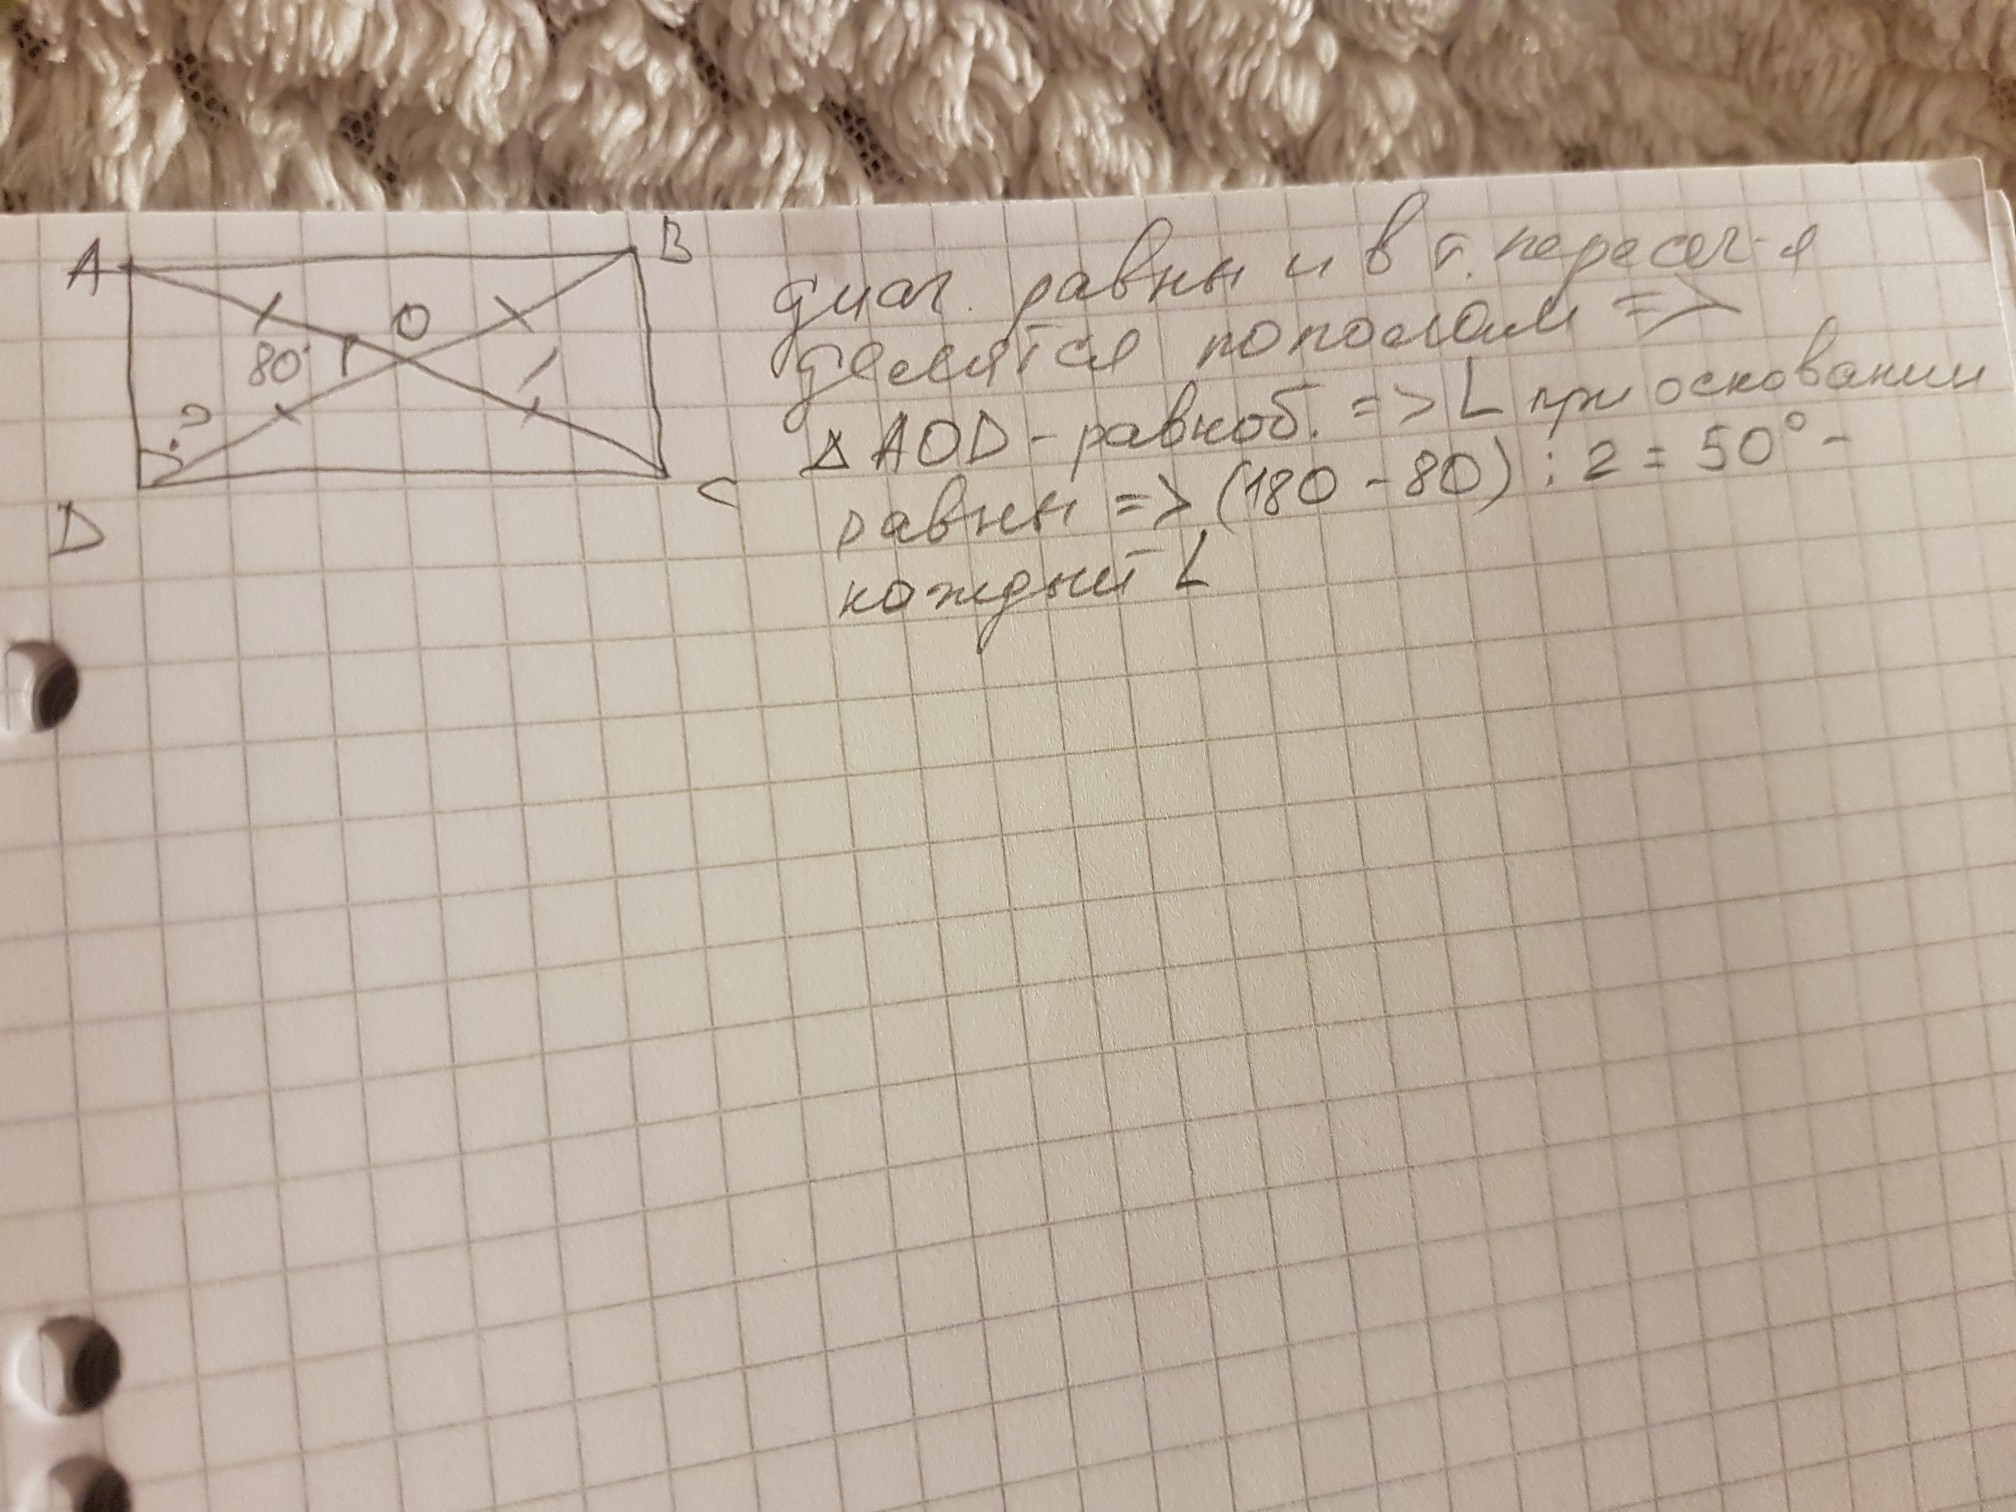 A
B
O
80°
?
D
C
диаг. равны и в т. пересеч-я
делятся пополам =>
△ AOD - равноб. => ∠ при основании
равны => (180 - 80) : 2 = 50° -
каждый ∠